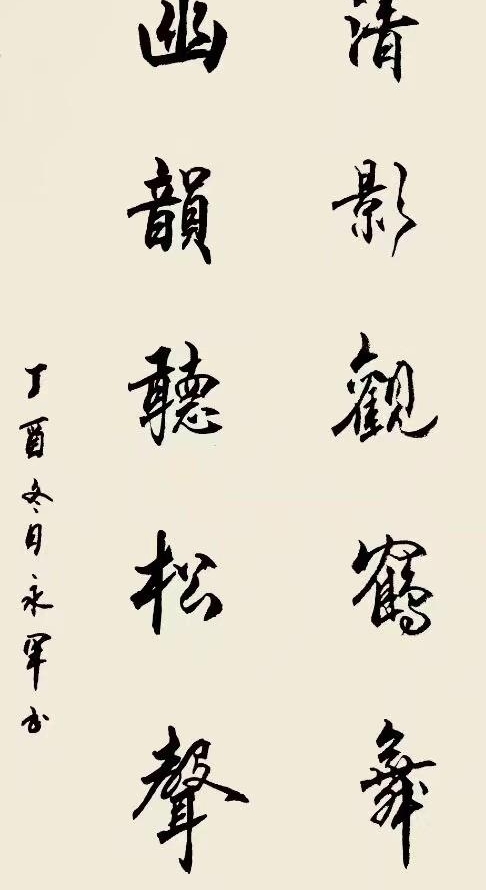 清影觀鶴舞
幽韻聽松聲
丁酉冬月永軍书